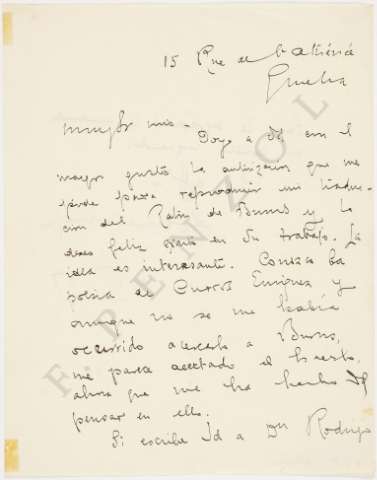 15 Rue de l'athénée
Muy Sr mio - Doy a Vd con el
mayor gusto la autorizacion que me
pide para reproducir mi traduc-
cion del Ratón de Burns y le
deseo feliz éxito en su trabajo. La
idea es interesante. Conozco la
poesia de Curros Enriquez y
aunque no se me habia
ocurrido acercarlo a Burns,
me parece acertado el hacerlo,
ahora que me ha hecho Vd
pensar en ello.
Si escribe Vd a Dn Rodrigo
F. PENZOL